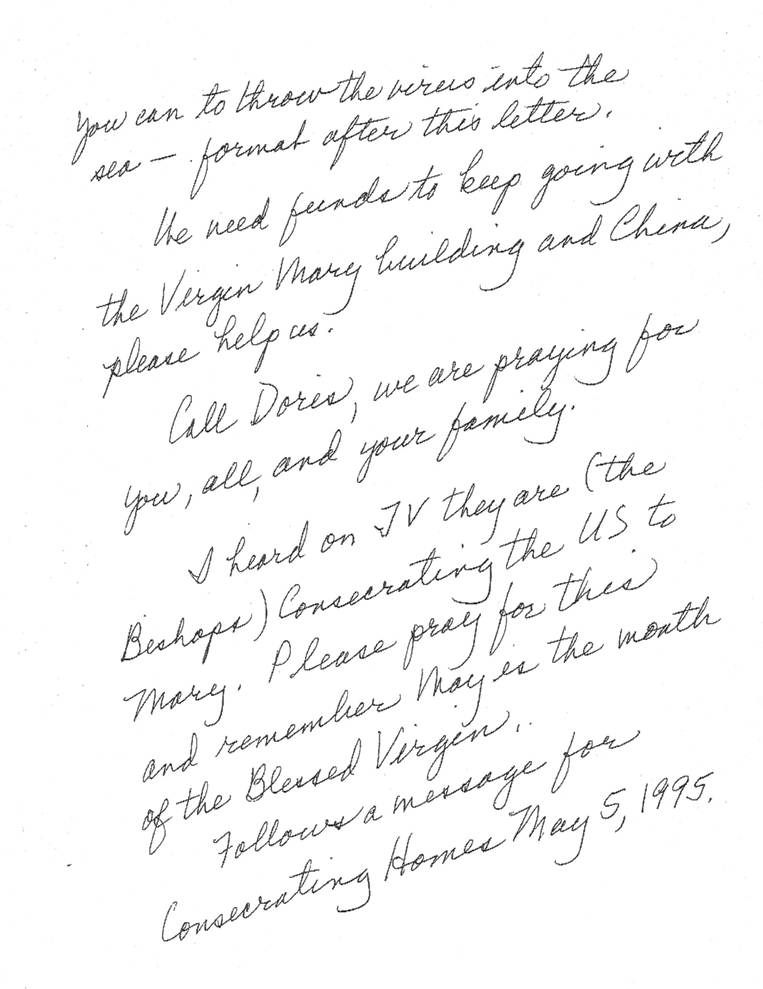 you can to throw the virus into the
sea — format after this letter.
We need funds to keep going with
the Virgin Mary building and China,
please help us.
Call Dories, we are praying for
you, all, and your family.
I heard on TV they are (the
Bishops) Consecrating the US to
Mary. Please pray for this
and remember May is the month
of the Blessed Virgin.
Follows a message for
Consecrating Homes May 5, 1995.